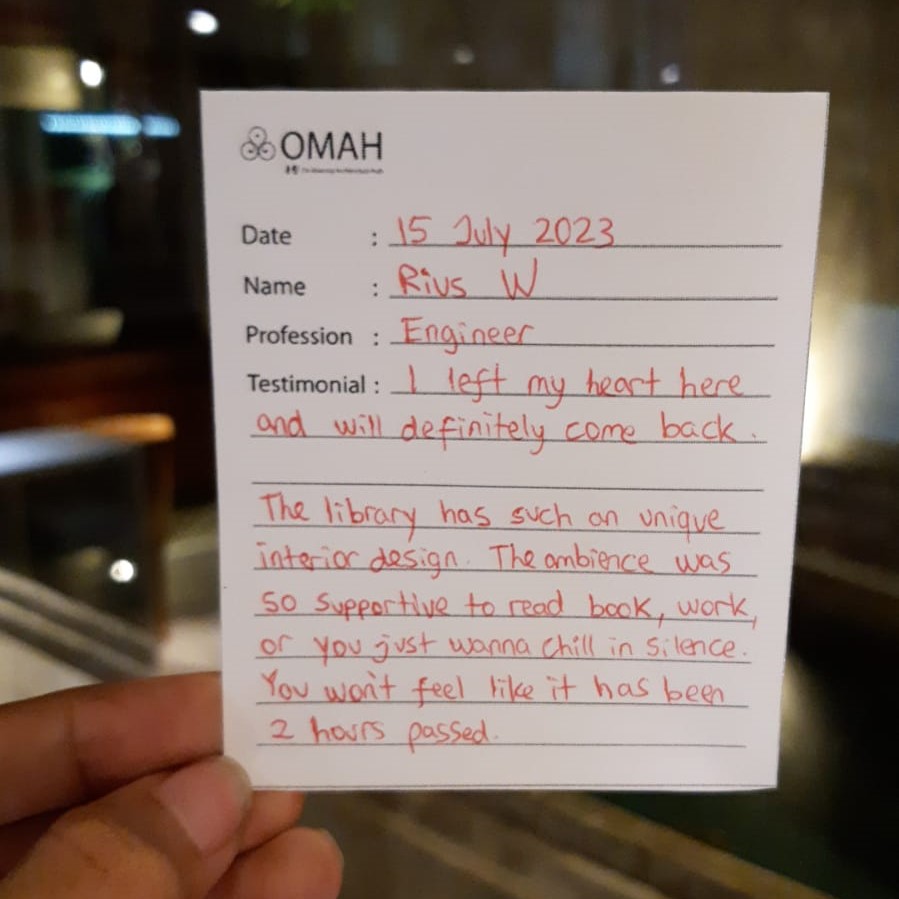 OMAH
Date : 15 July 2023
Name : Rius W
Profession : Engineer
Testimonial : I left my heart here
and will definitely come back.
The library has such an unique
interior design. The ambience was
so supportive to read book, work,
or you just wanna chill in silence.
You won't feel like it has been
2 hours passed.